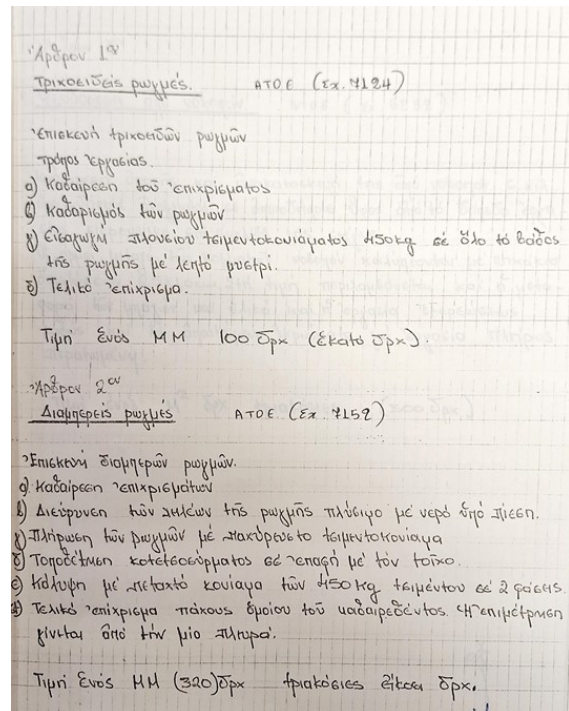 Ἄρθρον 1ον
Τριχοειδείς ρωγμές. ΑΤΟΕ (Σχ. 7124)
Ἐπισκευή τριχοειδῶν ρωγμῶν
Τρόπος ἐργασίας.
α) Καθαίρεση τοῦ ἐπιχρίσματος
β) Καθαρισμός τῶν ρωγμῶν
γ) Εἰσαγωγή πλουσίου τσιμεντοκονιάματος 450kg σέ ὅλο τό βάθος
τῆς ρωγμῆς μέ λεπτό μυστρί.
δ) Τελικό ἐπίχρισμα.
Τιμή ἑνός ΜΜ 100 δρχ (ἑκατό δρχ).
Ἄρθρον 2ον
Διαμπερείς ρωγμές ΑΤΟΕ (Σχ. 7152)
Ἐπισκευή διαμπερῶν ρωγμῶν.
α) Καθαίρεση ἐπιχρισμάτων
β) Διεύρυνση τῶν χειλέων τῆς ρωγμῆς πλύσιμο μέ νερό ὑπό πίεση.
γ) Πλήρωση τῶν ρωγμῶν μέ παχύρευστο τσιμεντοκονίαμα
δ) Τοποθέτηση κοτετσοσύρματος σέ ἐπαφή μέ τόν τοῖχο.
ε) Κάλυψη μέ πεταχτό κονίαμα τῶν 450 kg τσιμέντου σέ 2 φάσεις.
Τελικό ἐπίχρισμα πάχους ὁμοίου τοῦ καθαιρεθέντος. Ἡ ἐπιμέτρηση
γίνεται ἀπό τήν μία πλευρά.
Τιμή ἑνός ΜΜ (320) δρχ τριακόσιες εἴκοσι δρχ.